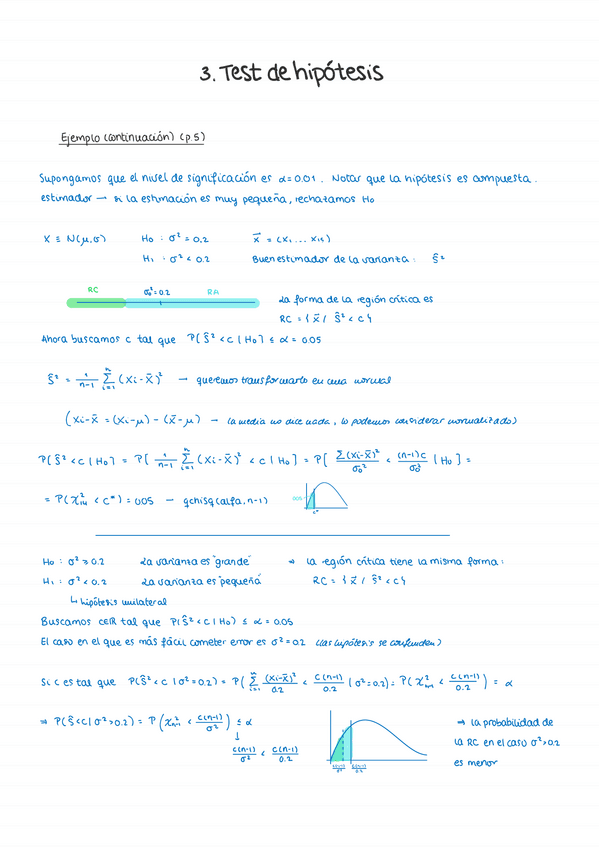 3. Test de hipótesis
Ejemplo (continuación) (p.5)
Supongamos que el nivel de significación es α=0.01. Notar que la hipótesis es compuesta.
estimador → si la estimación es muy pequeña, rechazamos H₀
X ≡ N(μ,σ) H₀ : σ² = 0.2 x⃗ = (x₁ ... x₁₅)
H₁ : σ² < 0.2 Buen estimador de la varianza : Ŝ²
RC σ₀²=0.2 RA
La forma de la región crítica es
RC = { x⃗ / Ŝ² < c }
Ahora buscamos c tal que P{ Ŝ² < c | H₀ } ≤ α = 0.05
Ŝ² = 1/(n-1) Σᵢ₌₁ⁿ (Xi - X̄)² → queremos transformarlo en una normal
(Xi - X̄ = (Xi - μ) - (X̄ - μ) → la media no dice nada, lo podemos considerar normalizado)
P{ Ŝ² < c | H₀ } = P{ 1/(n-1) Σᵢ₌₁ⁿ (Xi - X̄)² < c | H₀ } = P{ Σ(Xi - X̄)²/σ₀² < (n-1)c/σ₀² | H₀ } =
= P( χ²₁₄ < c* ) = 0.05 → qchisq(alfa, n-1) 0.05 c*
H₀ : σ² ≥ 0.2 La varianza es "grande" ⇒ La región crítica tiene la misma forma :
H₁ : σ² < 0.2 La varianza es "pequeña" RC = { x⃗ / Ŝ² < c }
↳ hipótesis unilateral
Buscamos c∈ℝ tal que P(Ŝ² < c | H₀) ≤ α = 0.05
El caso en el que es más fácil cometer error es σ² = 0.2 (las hipótesis se confunden)
Si c es tal que P(Ŝ² < c | σ² = 0.2) = P( Σᵢ₌₁ⁿ (Xi - X̄)²/0.2 < c(n-1)/0.2 | σ² = 0.2) = P( χ²ₙ₋₁ < c(n-1)/0.2 ) = α
⇒ P(Ŝ < c | σ² > 0.2) = P( χ²ₙ₋₁ < c(n-1)/σ² ) ≤ α ⇒ la probabilidad de
↓ la RC en el caso σ² > 0.2
c(n-1)/σ² < c(n-1)/0.2 c(n-1)/σ² c(n-1)/0.2 es menor